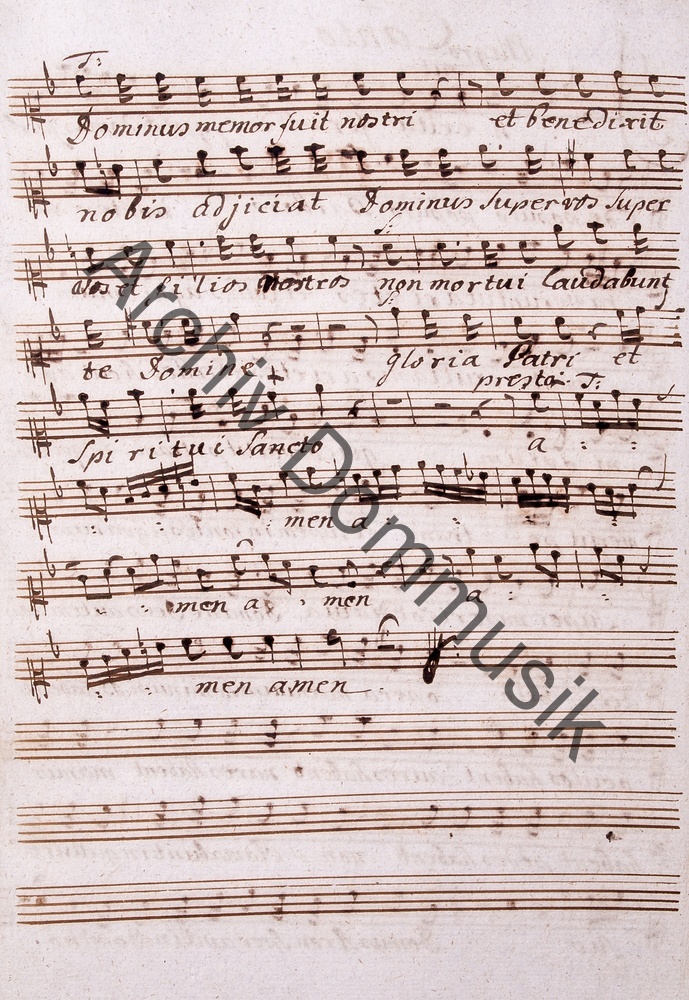 T:
Dominus memor fuit nostri et benedixit
nobis adjiciat Dominus super vos super
S:
vos et filios vostros non mortui laudabunt
S:
te Domine gloria Patri et
presto T:
Spiritui Sancto a
men a
men a men a
men amen
Archiv Dommusik